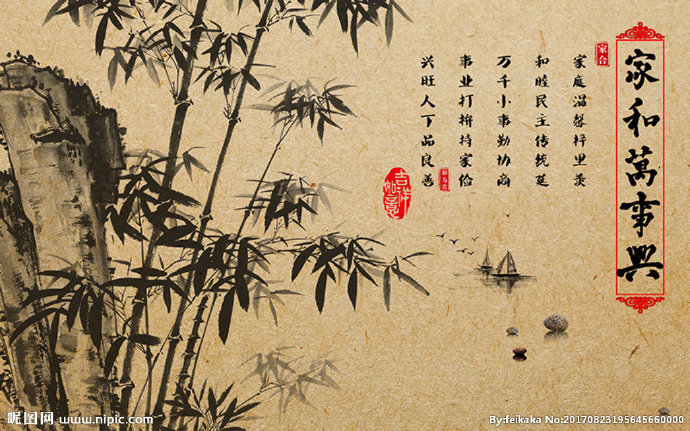 家和萬事興
家合
家庭温馨梓里羡
和睦民主传统延
万千小事勤协商
事业打拚持家俭
兴旺人丁品良善
和为贵
吉祥如意
昵图网 www.nipic.com
By:feikaka No:20170823195645660000